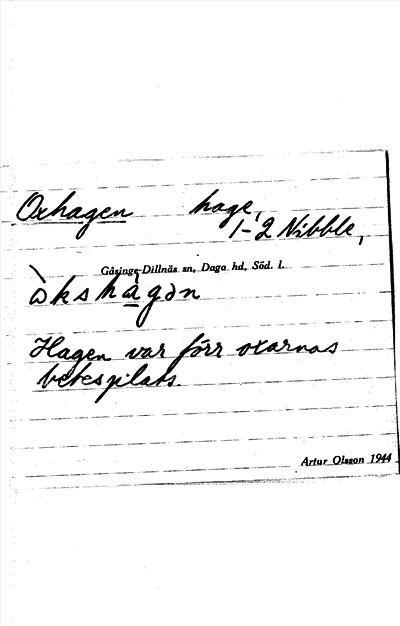 Oxhagen hage,
1-2 Nibble,
Gåsinge-Dillnäs sn, Daga hd, Söd. l.
òkshàgən
Hagen var förr oxarnas
betesplats.
Artur Olsson 1944